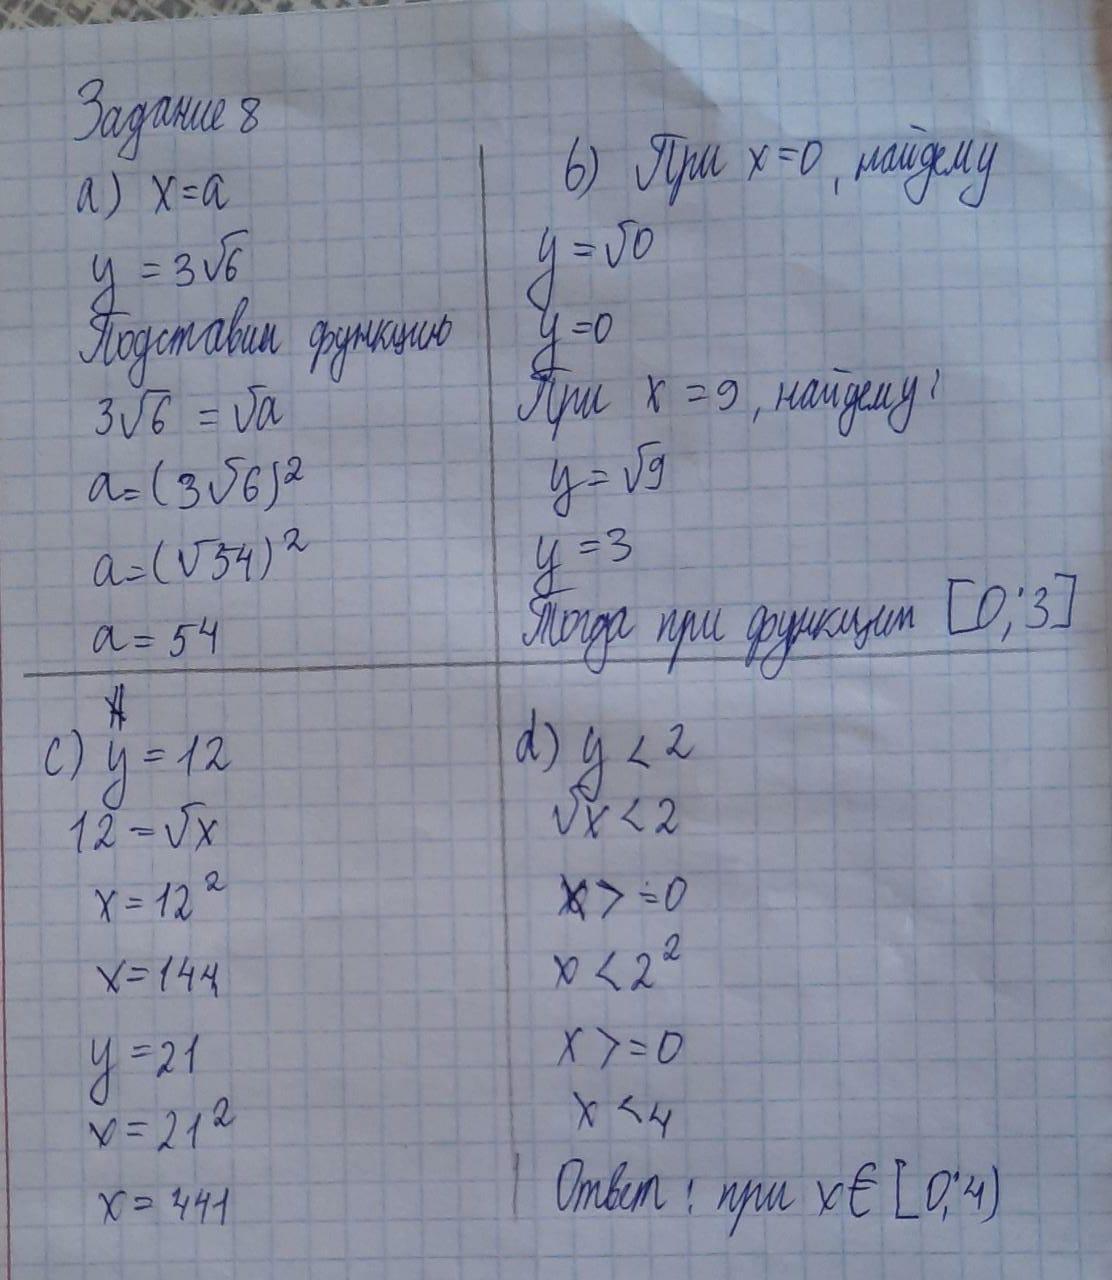 Задание 8
a) x=a
y = 3√6
Подставим функцию
3√6 = √a
a=(3√6)²
a=(√54)²
a = 54
b) При x=0, найдем y
y = √0
y=0
При x = 9, найдем y:
y = √9
y = 3
Тогда при функции [0;3]
c) y = 12
12 = √x
x = 12²
x=144
y = 21
x = 21²
x = 441
d) y < 2
√x < 2
x > = 0
x < 2²
x > = 0
x < 4
Ответ: при x∈[0;4)